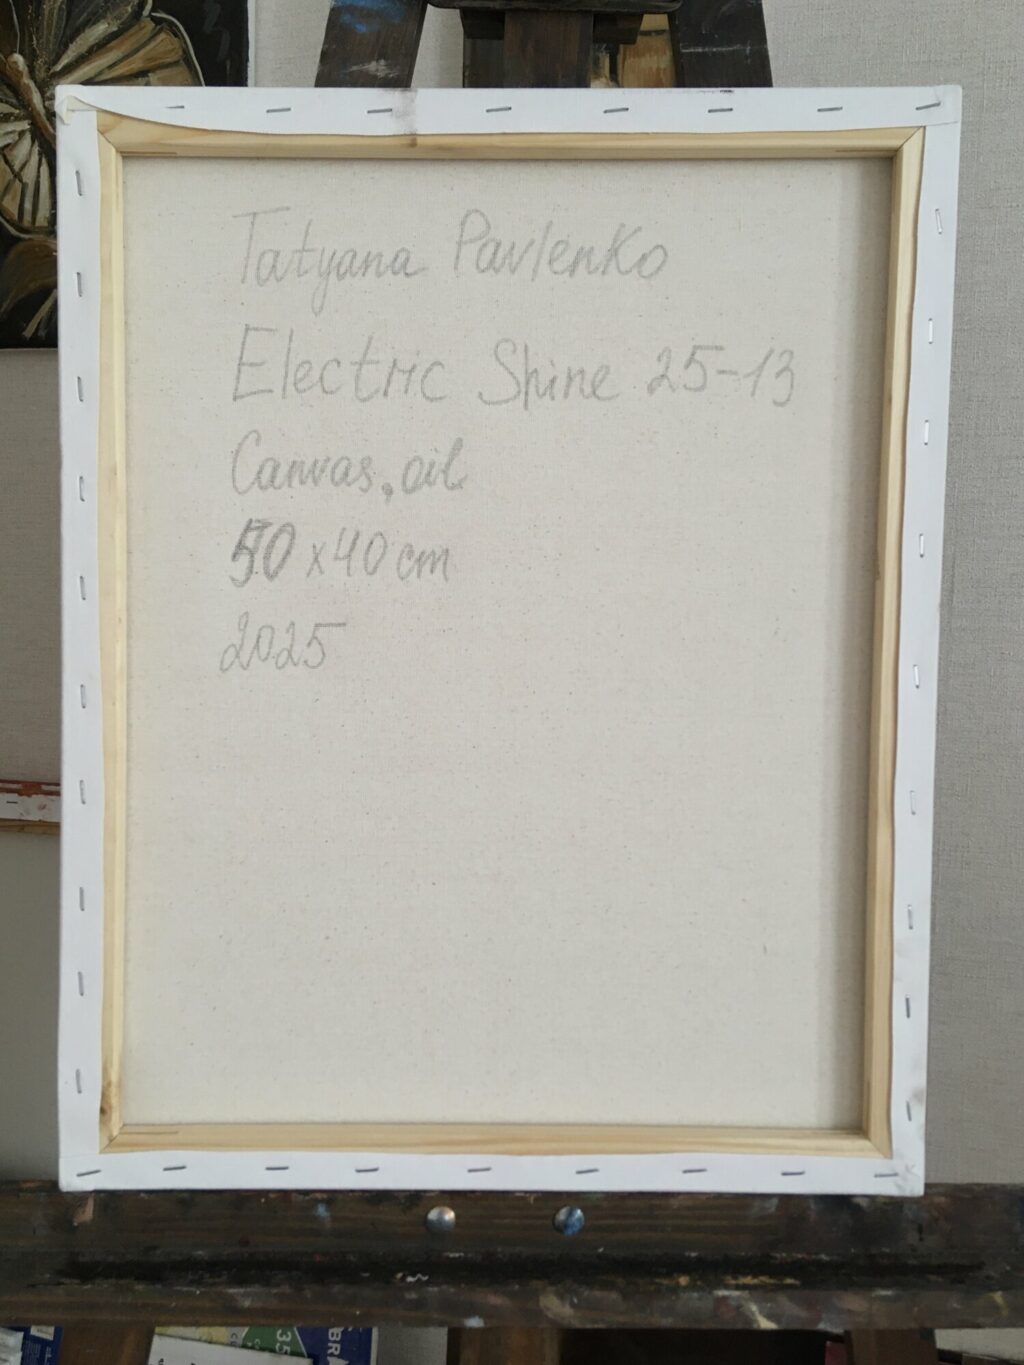 Tatyana Pavlenko
Electric Shine 25-13
Canvas, oil
50 x 40 cm
2025
35
BRA